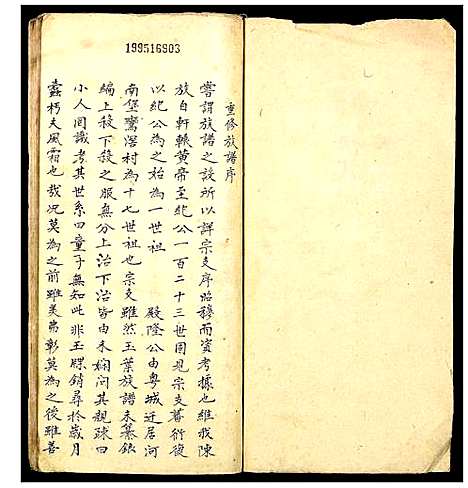 199516903
重修族譜序
嘗謂族譜之設所以詳宗支序昭穆而資考據也維我陳
族自軒轅黃帝至紀公一百二十三世固見宗支蕃衍後
以紀公為之始為一世祖 殿隆公由粵城迁居河
南堡鷺滘村為十七世祖也宗支雖然玉葉族譜未纂錄
編上殺下殺之服無分上治下治皆由未嫻问其親疎曰
小人囯識考其世系四童子無知此非玉牒銷尋於歲月
蠹朽夫風霜也哉况莫為之前雖美弗彰莫為之後雖善